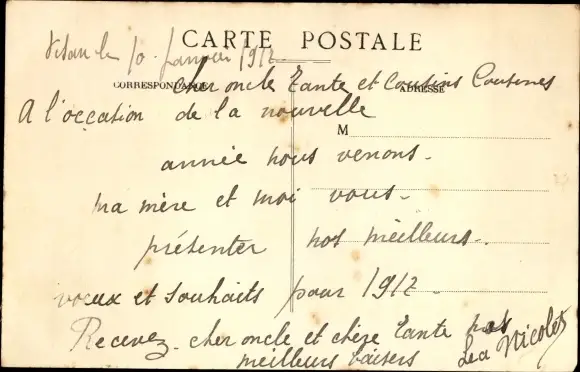 CARTE POSTALE
Visan le 10 Janvier 1912
CORRESPONDANCE
ADRESSE
cher oncle Tante et Cousins Cousines
A l'occation de la nouvelle
M
année nous venons.
ma mère et moi vous.
présenter nos meilleurs.
voeux et souhaits pour 1912
Recevez cher oncle et chère Tante nos
meilleurs baisers
Léa Nicolet